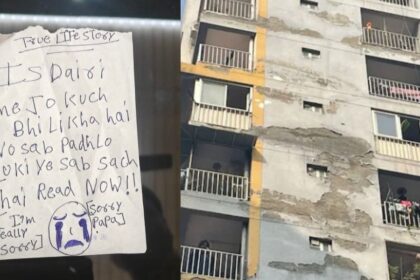 True Life Story
Is Dairi
me Jo kuch
Bhi Likha hai
Vo sab Padhlo
uki ye sab sach
hai Read Now!!
[I'm
eally
sorry]
[sorry
Papa]